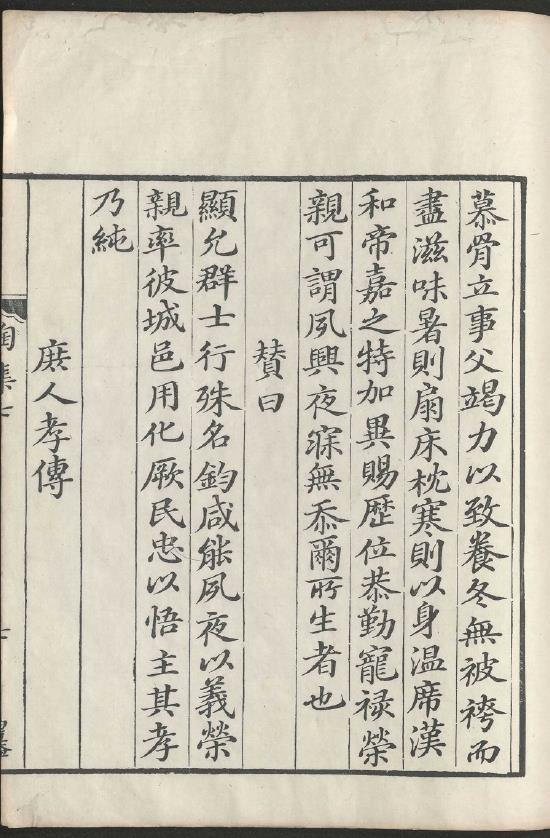 慕骨立事父竭力以致養冬無被袴而
盡滋味暑則扇床枕寒則以身温席漢
和帝嘉之特加異賜歷位恭勤寵禄榮
親可謂夙興夜寐無忝爾所生者也
贊曰
顯允群士行殊名鈞咸能夙夜以義榮
親率彼城邑用化厥民忠以悟主其孝
乃純
庶人孝傳
陶集七
七